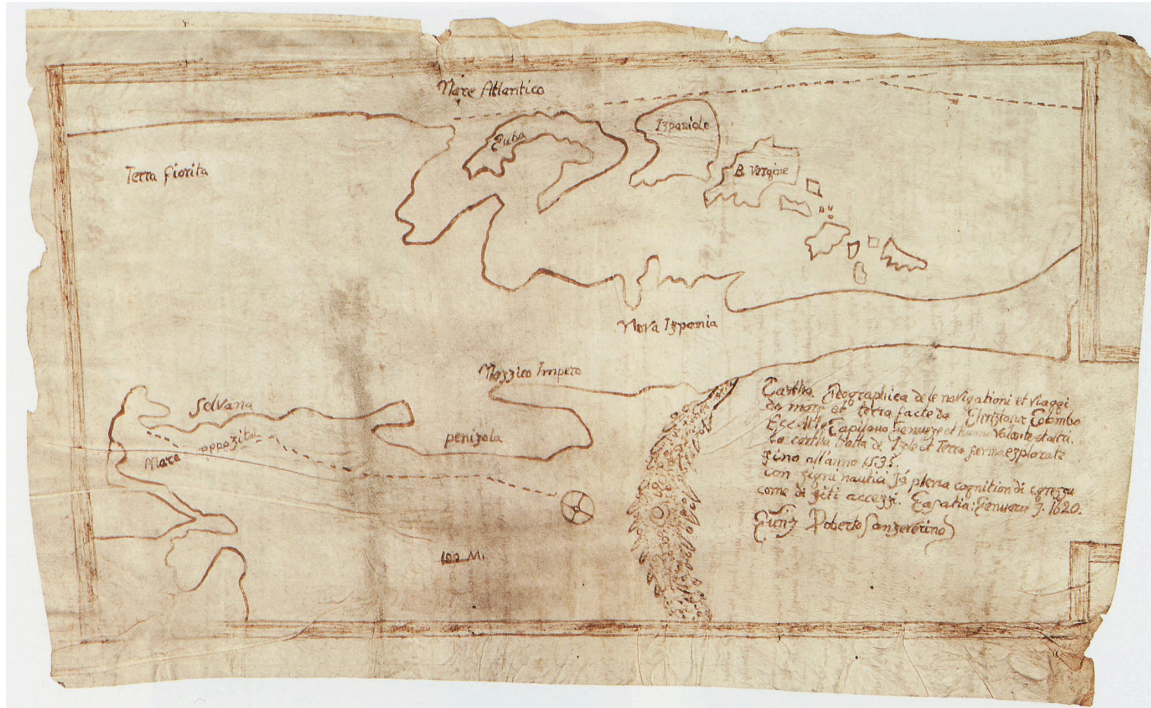 Mare Atlantico
Terra fiorita
Cuba
Ispaniola
B. Vergine
Nova Ispania
Mozzico Impero
Selvana
penisola
Mare opposito
100 M.
Cartha Geographica de le navigationi et viaggi
da mare et terra facte da Christopus Colombo
Ecc. Capitano Genuese et huomi Valente et altri
la cartha tratta de Isole et Terra ferma esplorate
fino all'anno 153
con signi nautici
come de siti accessi. 1620.
Roberto Sanseverino